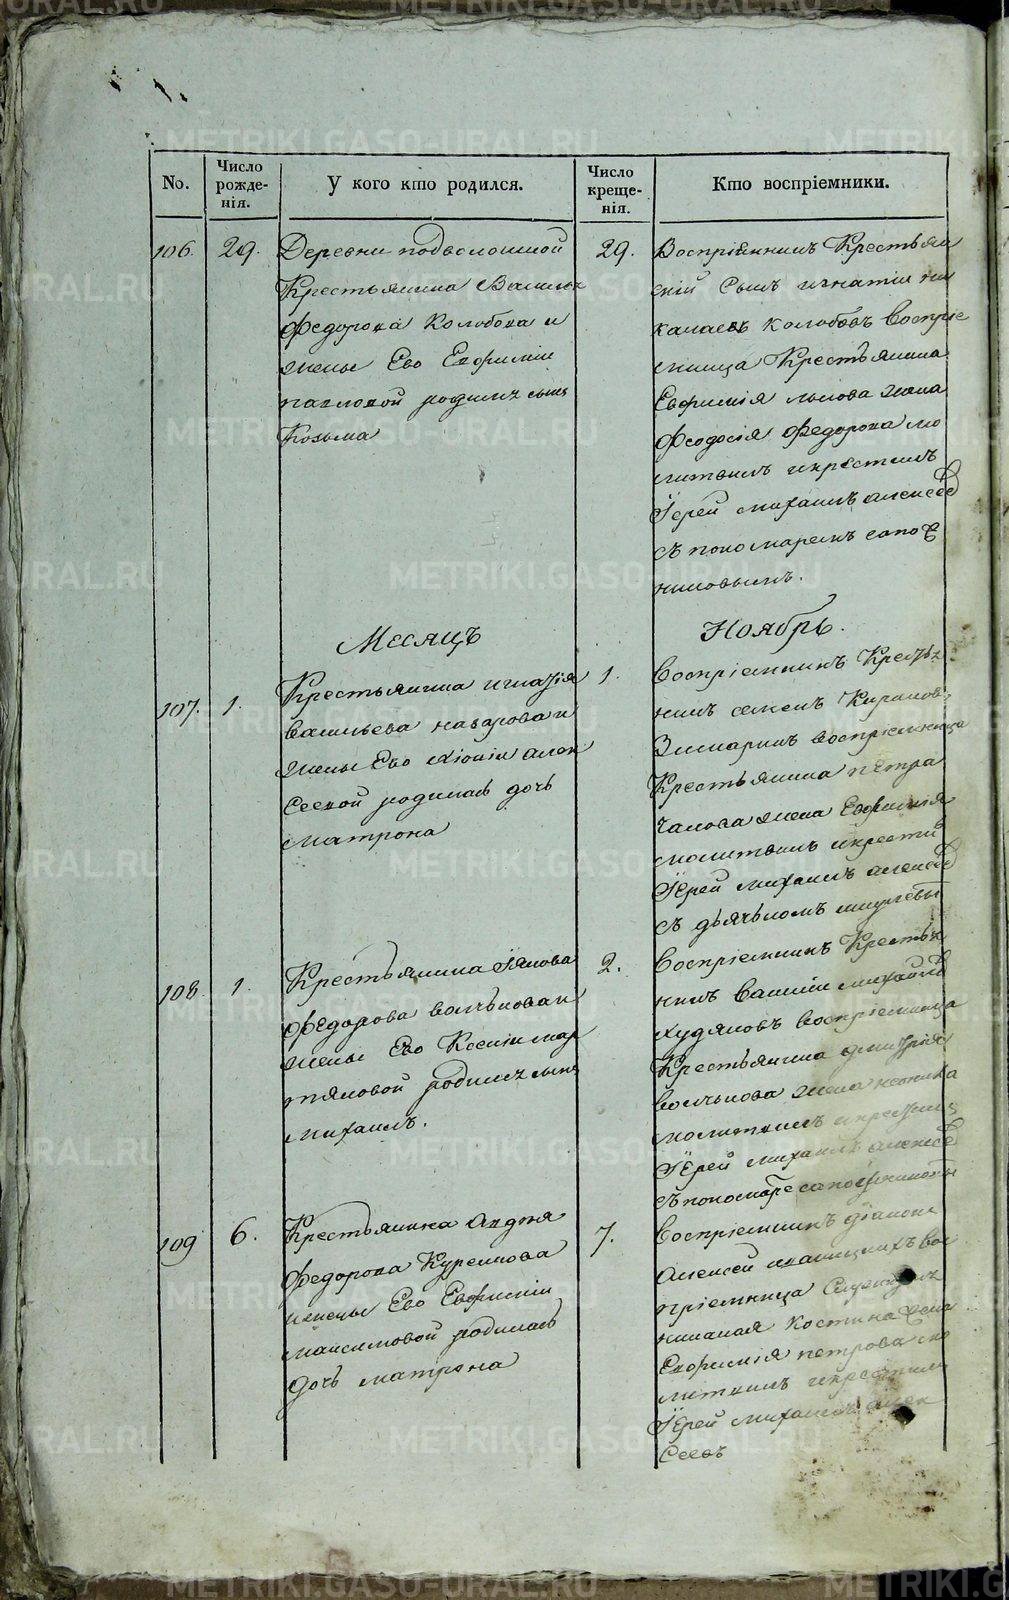 No.
Число рожде-нія.
У кого кто родился.
Число креще-нія.
Кто воспріемники.
106.
29.
Деревни подволошной
Крестьянина Василья
Федорова Колобова и
жены Ево Евфиміи
павловой родился сынъ
Козьма
29.
Воспріемникъ Крестьян
скій Сынъ игнатіи ни
калаевъ колобовъ Воспріе
мница Крестьянина
Евфимія жена
Феодосія Федорова мо
литвилъ икрестилъ
Іерей михаилъ алексеев
съ пономаремъ сапож
никовымъ.
Месяцъ
Ноябрь.
107.
1.
Крестьянина игнатія
васильева назарова и
жены Ево хіоніи алек
сеевой родилась дочь
матрона
1.
Воспріемникъ Кресть
нинъ семенъ
воспріемница
Крестьянина петра
жена Евфимія
молитвилъ икрестил
Іерей михаилъ алексеев
съ дьячкомъ
108.
1.
Крестьянина Іякова
Федорова волчкова и
жены Ево Ксеніи мар
тяновой родился сынъ
михаилъ.
2.
Воспріемникъ Крестья
нинъ Василіи михайлов
худяковъ воспріемница
Крестьянина дмитрія
волчкова жена
молитвилъ икрестилъ
Іерей михаилъ алексеев
109
6.
Крестьянина Андрея
Федорова Куренкова
и жены Ево Евфиміи
максимовой родилась
дочь матрона
7.
Воспріемникъ діаконъ
Алексеи вос
пріемница
Костина жена
Евфимія петрова мо
литвилъ икрестилъ
Іерей михаилъ алек
сеевъ
METRIKI.GASO-URAL.RU